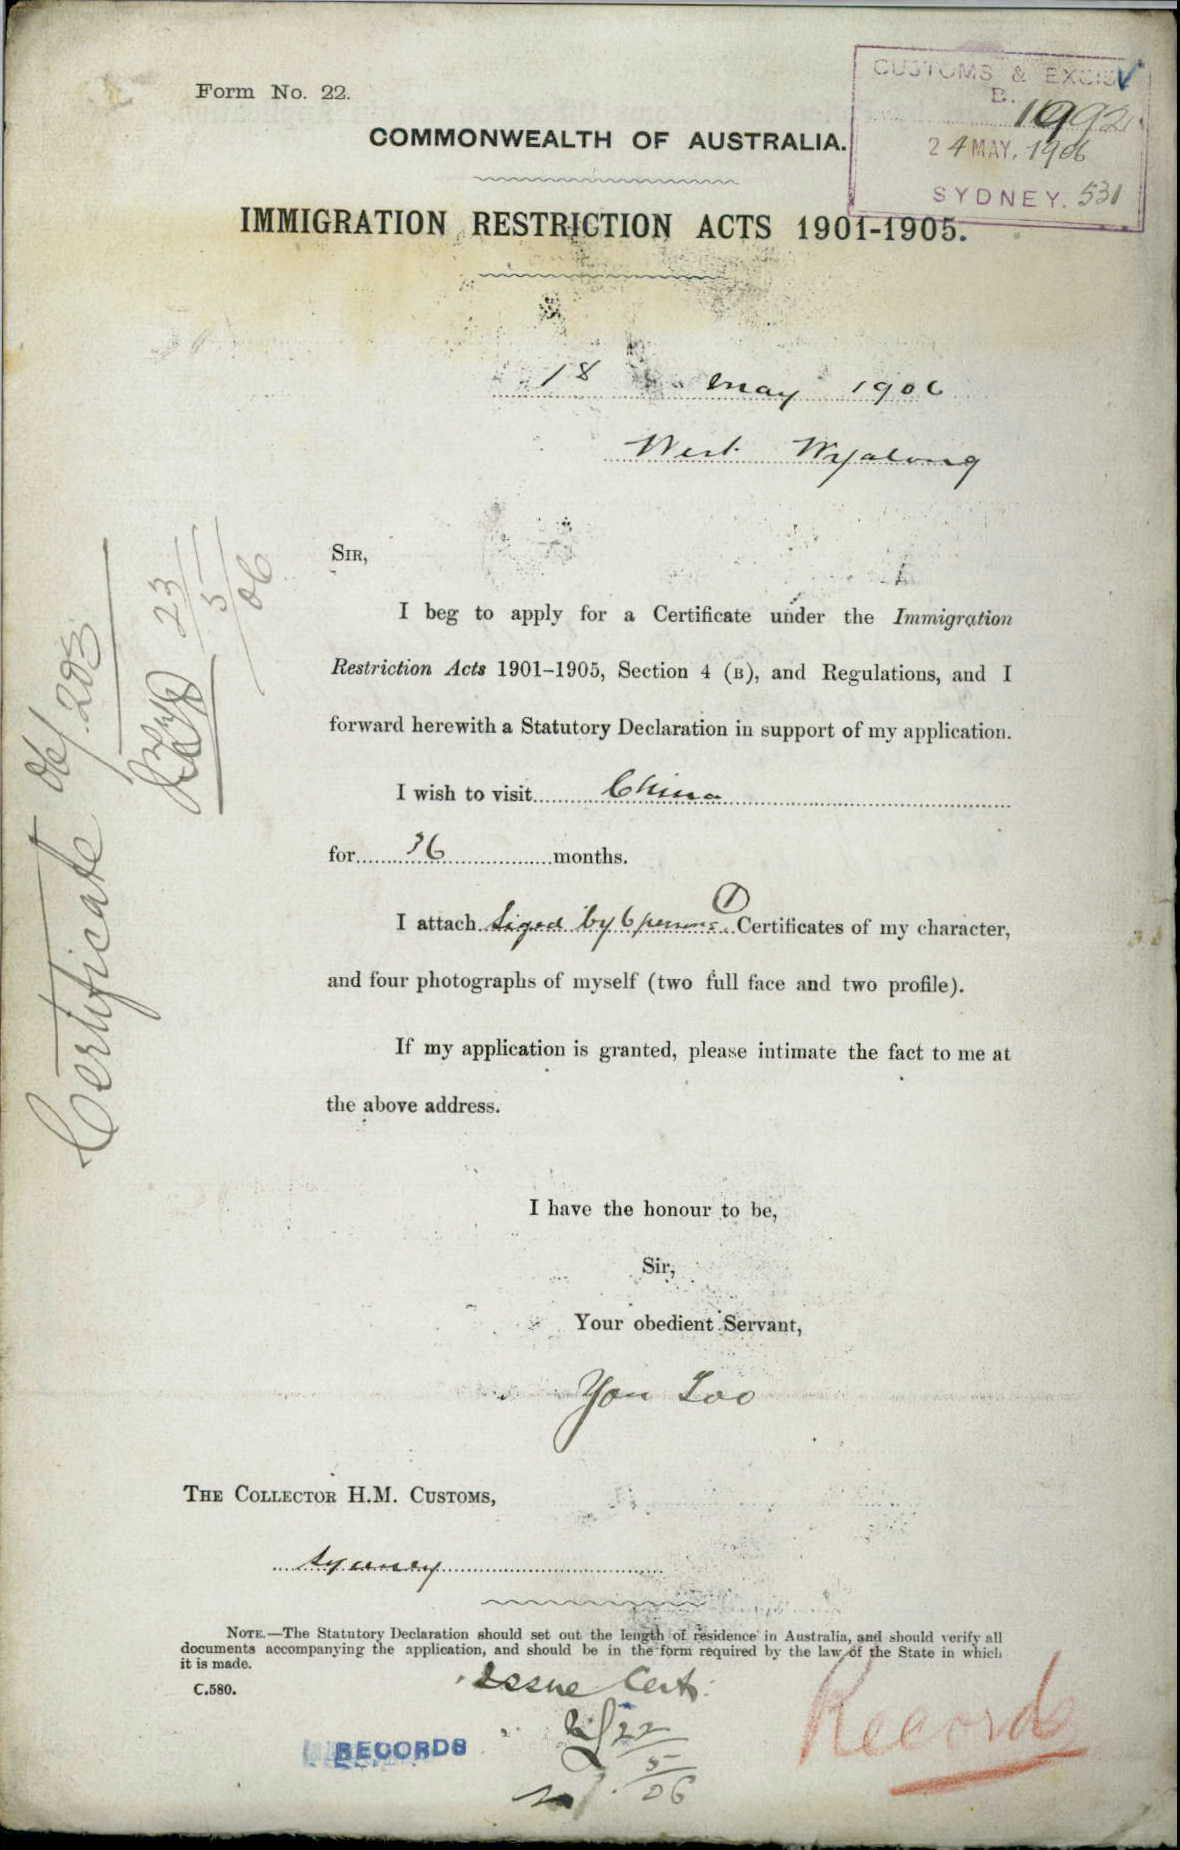 Form No. 22.
CUSTOMS & EXCISE
B.
1992
24 MAY. 1906
SYDNEY. 531
COMMONWEALTH OF AUSTRALIA.
IMMIGRATION RESTRICTION ACTS 1901-1905.
18 May 1906
West Wyalong
SIR,
I beg to apply for a Certificate under the Immigration
Restriction Acts 1901-1905, Section 4 (B), and Regulations, and I
forward herewith a Statutory Declaration in support of my application.
I wish to visit China
for 36 months.
I attach Siged by 6 persons (1) Certificates of my character,
and four photographs of myself (two full face and two profile).
If my application is granted, please intimate the fact to me at
the above address.
I have the honour to be,
Sir,
Your obedient Servant,
Yon Loo
THE COLLECTOR H.M. CUSTOMS,
Sydney
NOTE.—The Statutory Declaration should set out the length of residence in Australia, and should verify all
documents accompanying the application, and should be in the form required by the law of the State in which
it is made.
C.580.
Issue Cert.
22
5
06
RECORDS
Records
Certificate 06/203
23
5
06